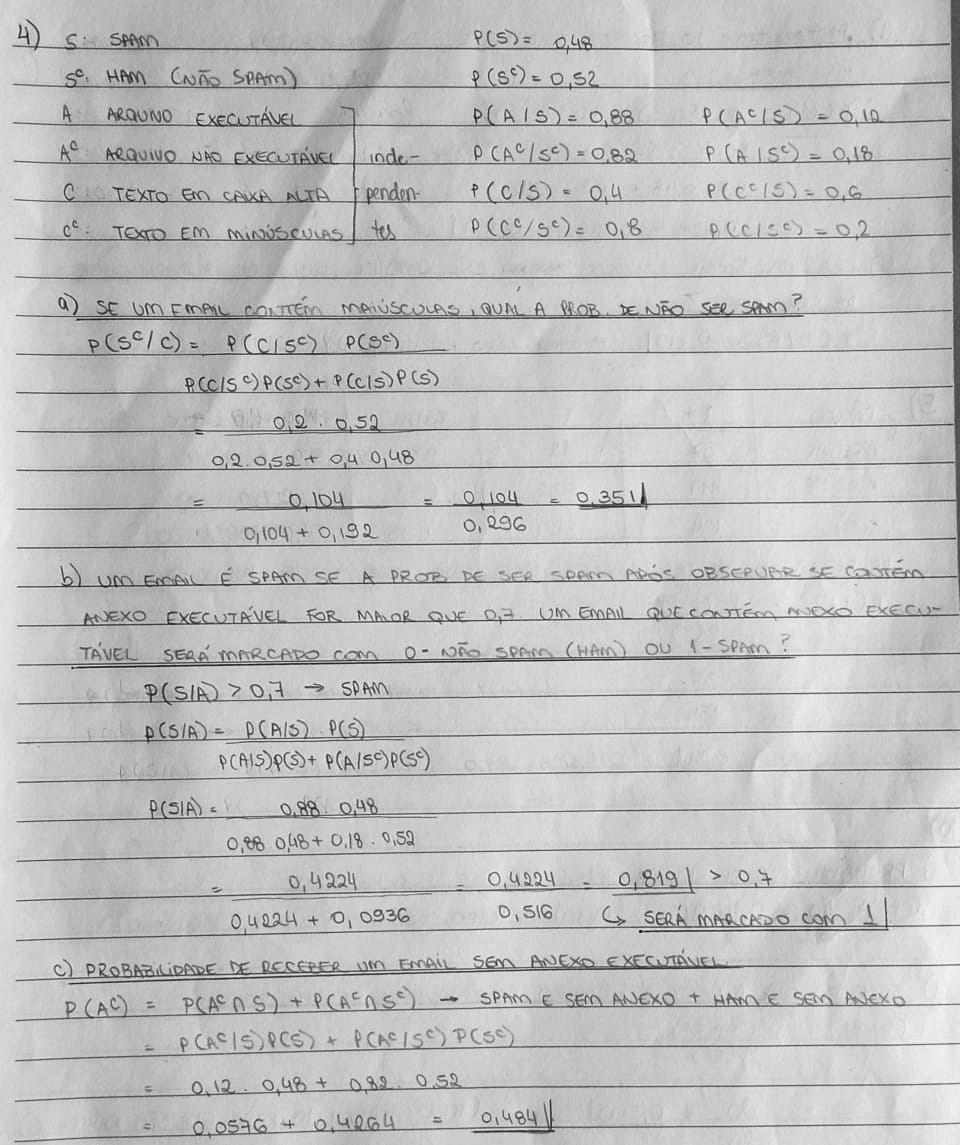 4) S: SPAM P(S) = 0,48
Sᶜ: HAM (NÃO SPAM) P(Sᶜ) = 0,52
A: ARQUIVO EXECUTÁVEL P(A|S) = 0,88 P(Aᶜ|S) = 0,12
Aᶜ: ARQUIVO NÃO EXECUTÁVEL inde- P(Aᶜ/Sᶜ) = 0,82 P(A|Sᶜ) = 0,18
C: TEXTO EM CAIXA ALTA penden- P(C/S) = 0,4 P(Cᶜ/S) = 0,6
Cᶜ: TEXTO EM MINÚSCULAS tes P(Cᶜ/Sᶜ) = 0,8 P(C/Sᶜ) = 0,2
a) SE UM EMAIL CONTÉM MAIÚSCULAS, QUAL A PROB. DE NÃO SER SPAM?
P(Sᶜ/C) = P(C/Sᶜ) P(Sᶜ)
P(C/Sᶜ)P(Sᶜ) + P(C/S)P(S)
= 0,2 . 0,52
0,2 . 0,52 + 0,4 . 0,48
= 0,104 = 0,104 = 0,351
0,104 + 0,192 0,296
b) UM EMAIL É SPAM SE A PROB DE SER SPAM APÓS OBSERVAR SE CONTÉM
ANEXO EXECUTÁVEL FOR MAIOR QUE 0,7. UM EMAIL QUE CONTÉM ANEXO EXECU-
TÁVEL SERÁ MARCADO COM 0 - NÃO SPAM (HAM) OU 1 - SPAM?
P(S/A) > 0,7 → SPAM
P(S/A) = P(A/S) . P(S)
P(A/S)P(S) + P(A/Sᶜ)P(Sᶜ)
P(S/A) = 0,88 . 0,48
0,88 . 0,48 + 0,18 . 0,52
= 0,4224 = 0,4224 = 0,819 > 0,7
0,4224 + 0,0936 0,516 ↳ SERÁ MARCADO COM 1
c) PROBABILIDADE DE RECEBER UM EMAIL SEM ANEXO EXECUTÁVEL
P(Aᶜ) = P(Aᶜ∩S) + P(Aᶜ∩Sᶜ) → SPAM E SEM ANEXO + HAM E SEM ANEXO
= P(Aᶜ/S)P(S) + P(Aᶜ/Sᶜ)P(Sᶜ)
= 0,12 . 0,48 + 0,82 . 0,52
= 0,0576 + 0,4264 = 0,484